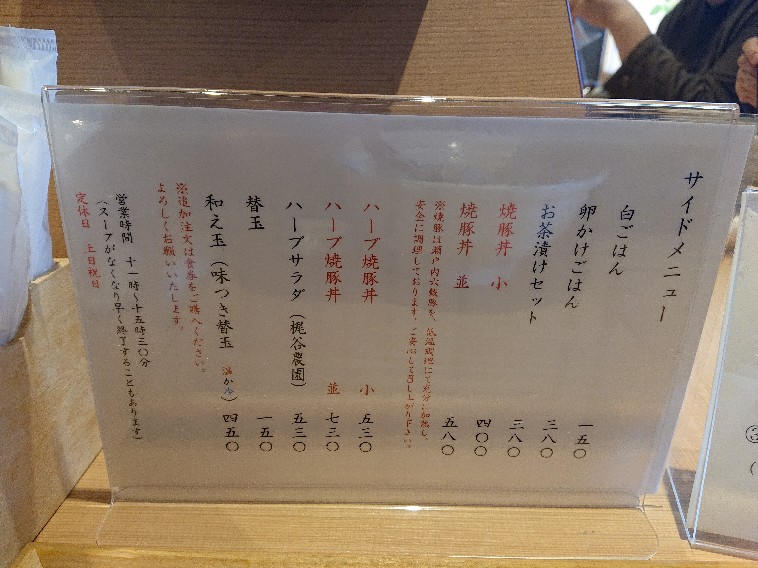 サイドメニュー
白ごはん 一五〇
卵かけごはん 三八〇
お茶漬けセット 三八〇
焼豚丼 小 四〇〇
焼豚丼 並 五八〇
※焼豚は瀬戸内六穀豚を、低温調理にて充分に加熱し、
安全に調理しております。ご安心して召し上がり下さい。
ハーブ焼豚丼 小 五三〇
ハーブ焼豚丼 並 七三〇
ハーブサラダ(梶谷農園) 五三〇
替玉 一五〇
和え玉(味つき替玉 温か冷) 四五〇
※追加注文は食券をご購入ください。
よろしくお願いいたします。
営業時間 十一時〜十五時三〇分
(スープがなくなり早く終了することもあります)
定休日 土日祝日
③
(